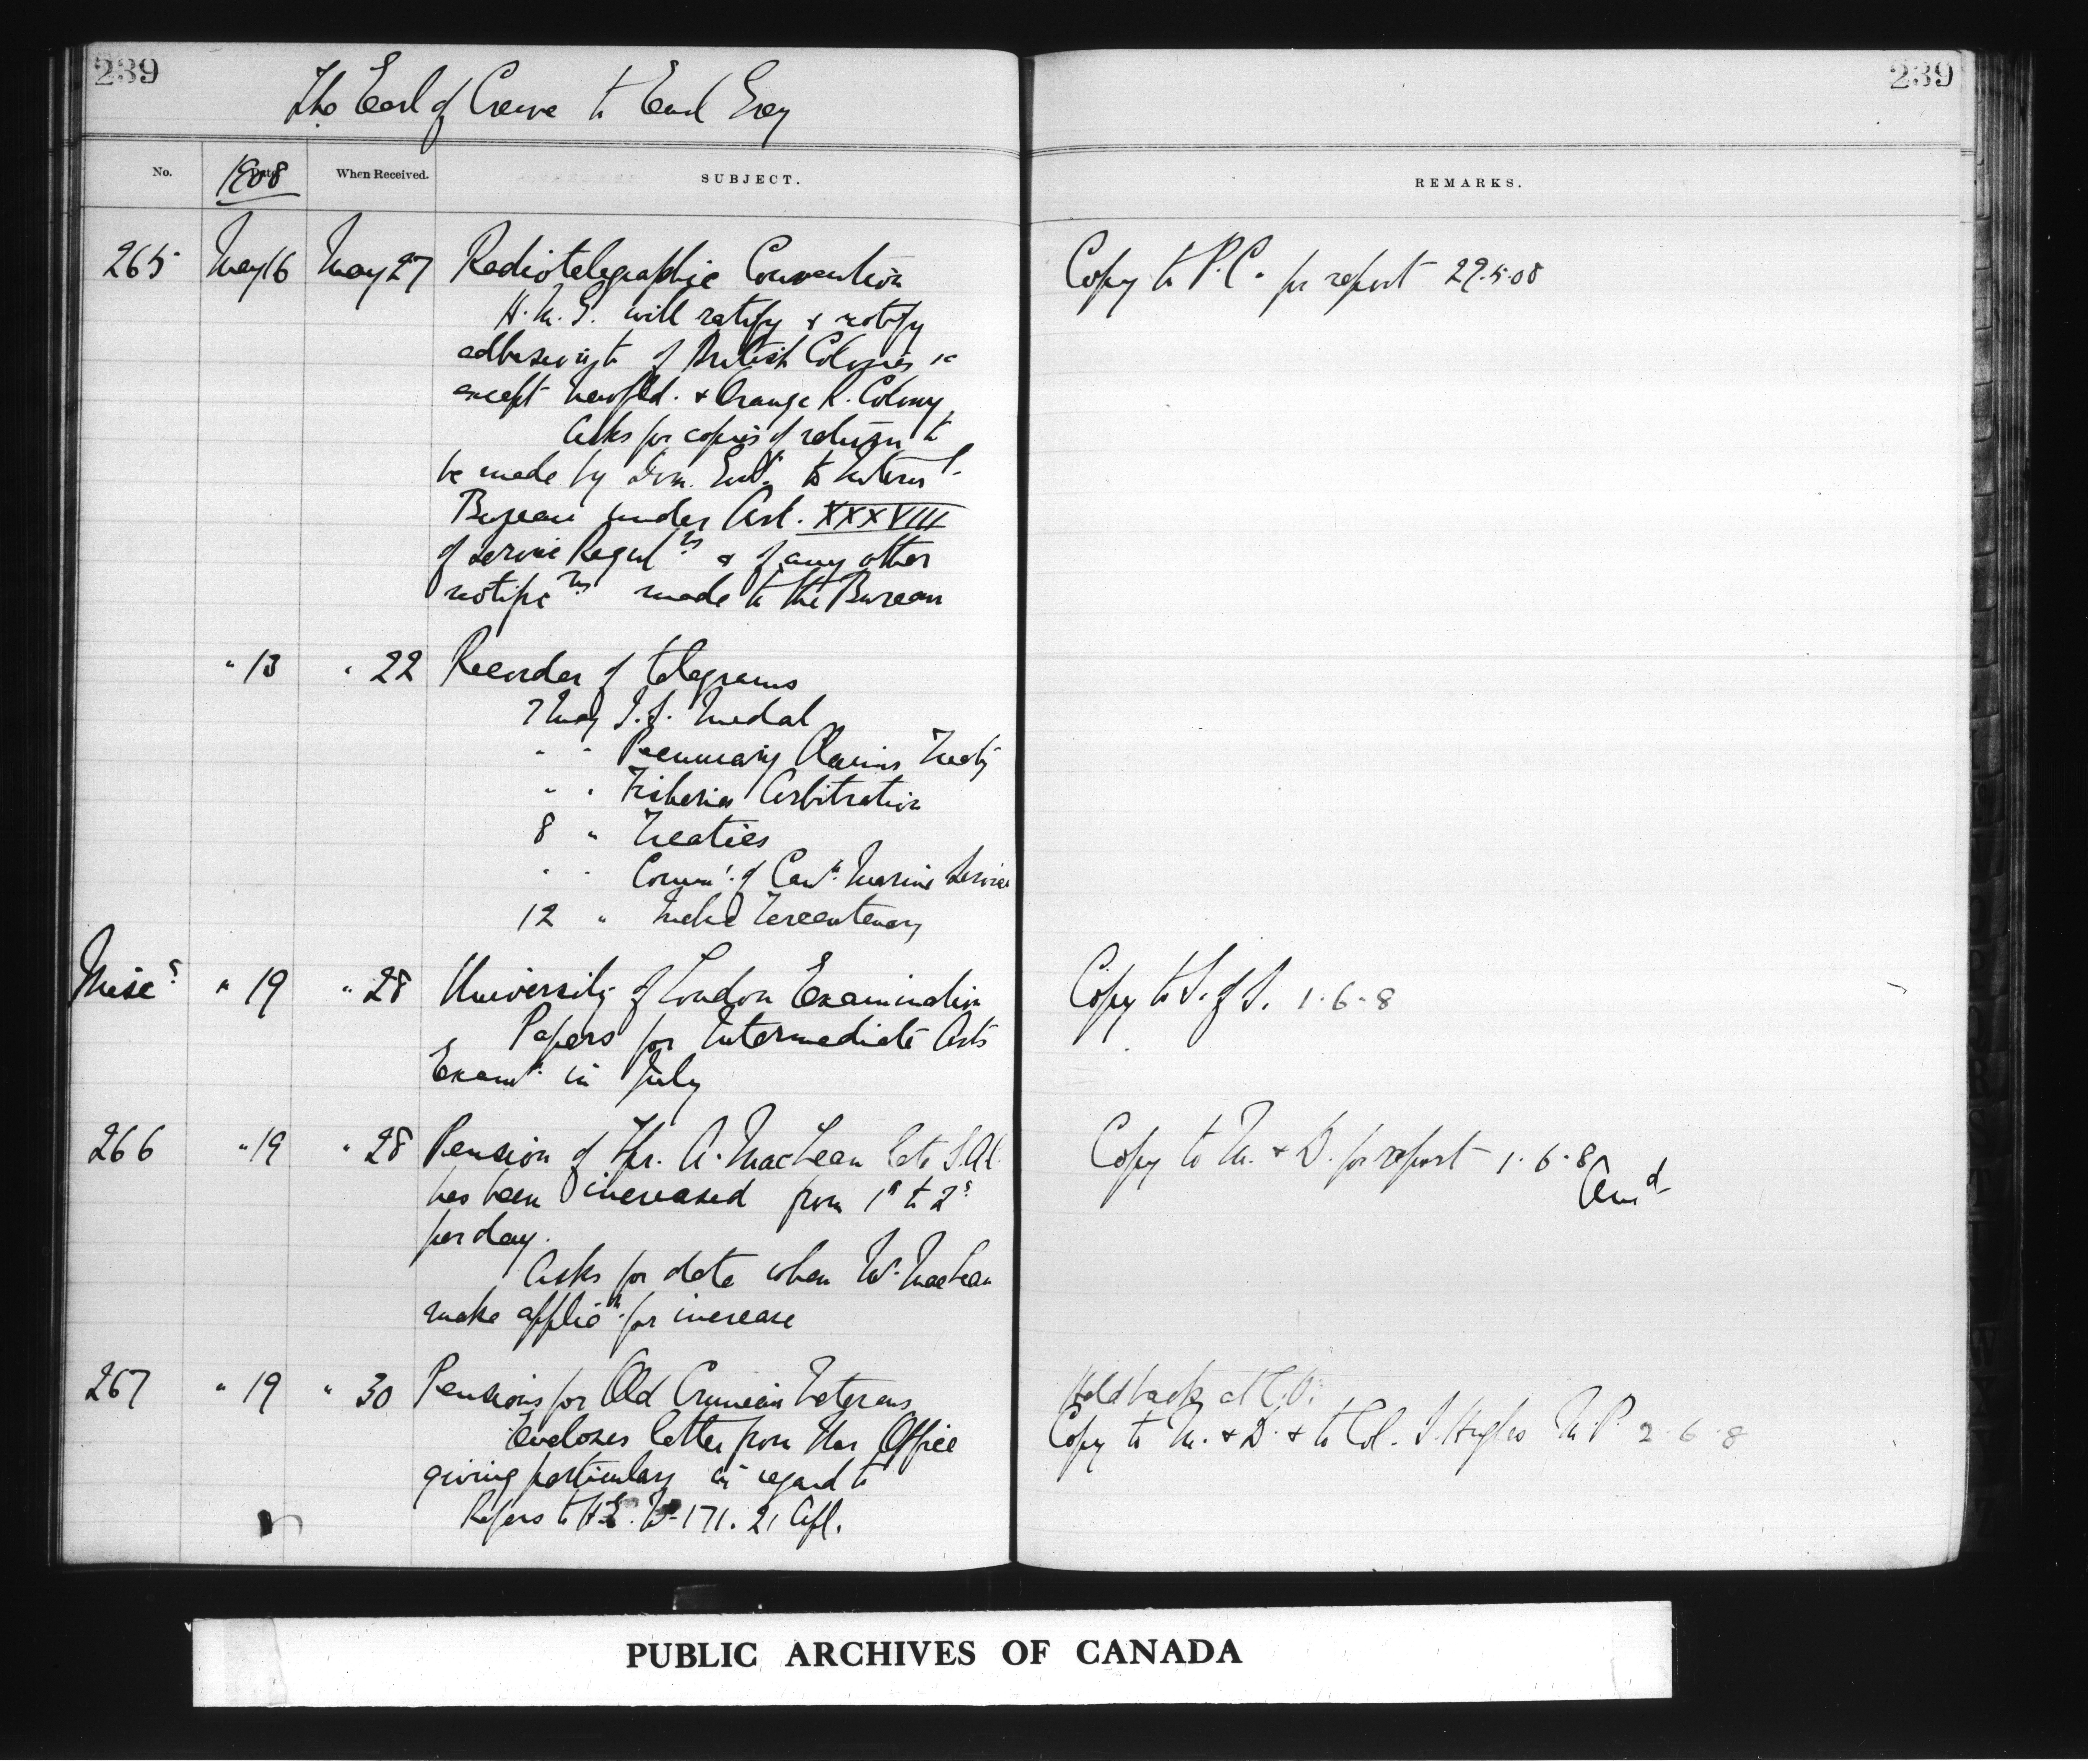 239
239
The Earl of Crewe to Earl Grey
No.
1908
When Received.
SUBJECT.
REMARKS.
265 May 16 May 27 Radiotelegraphic Convention
Copy to P.C. for report 29.5.08
H.M.G. will ratify & notify
of British Colonies &c
except Newfld. & Orange R. Colony
Asks for copies of return to
be made by Dom. Govt. to Internl.
Bureau under Art. XXXVIII
of service Reguln͞s & of any other
notificns made to the Bureau
" 13 " 22 Recorder of telegrams
7 May I.S. Medal
" " Pecuniary Claims Treaty
" " Fisheries Arbitration
8 " Treaties
" " of Cann. Marine Service
12 " Quebec Tercentenary
Misc " 19 " 28 University of London Examination
Copy to S. of S. 1.6.8
Papers for Intermediate Arts
Examn. in July
266 " 19 " 28 Pension of Mr. A. MacLean late
Copy to M. & D. for report 1.6.8
Ansd
has been increased from 1s to 2s
per day.
Asks for date when Mr. MacLean
make applicn. for increase
267 " 19 " 30 Pensions for Old Crimean Veterans
Held back at C.O.
Encloses letter from War Office
Copy to M. & D. & to Col. S. Hughes M.P. 2.6.8
giving particulars in regard to
Refers to 171. 21 Apl.
PUBLIC ARCHIVES OF CANADA